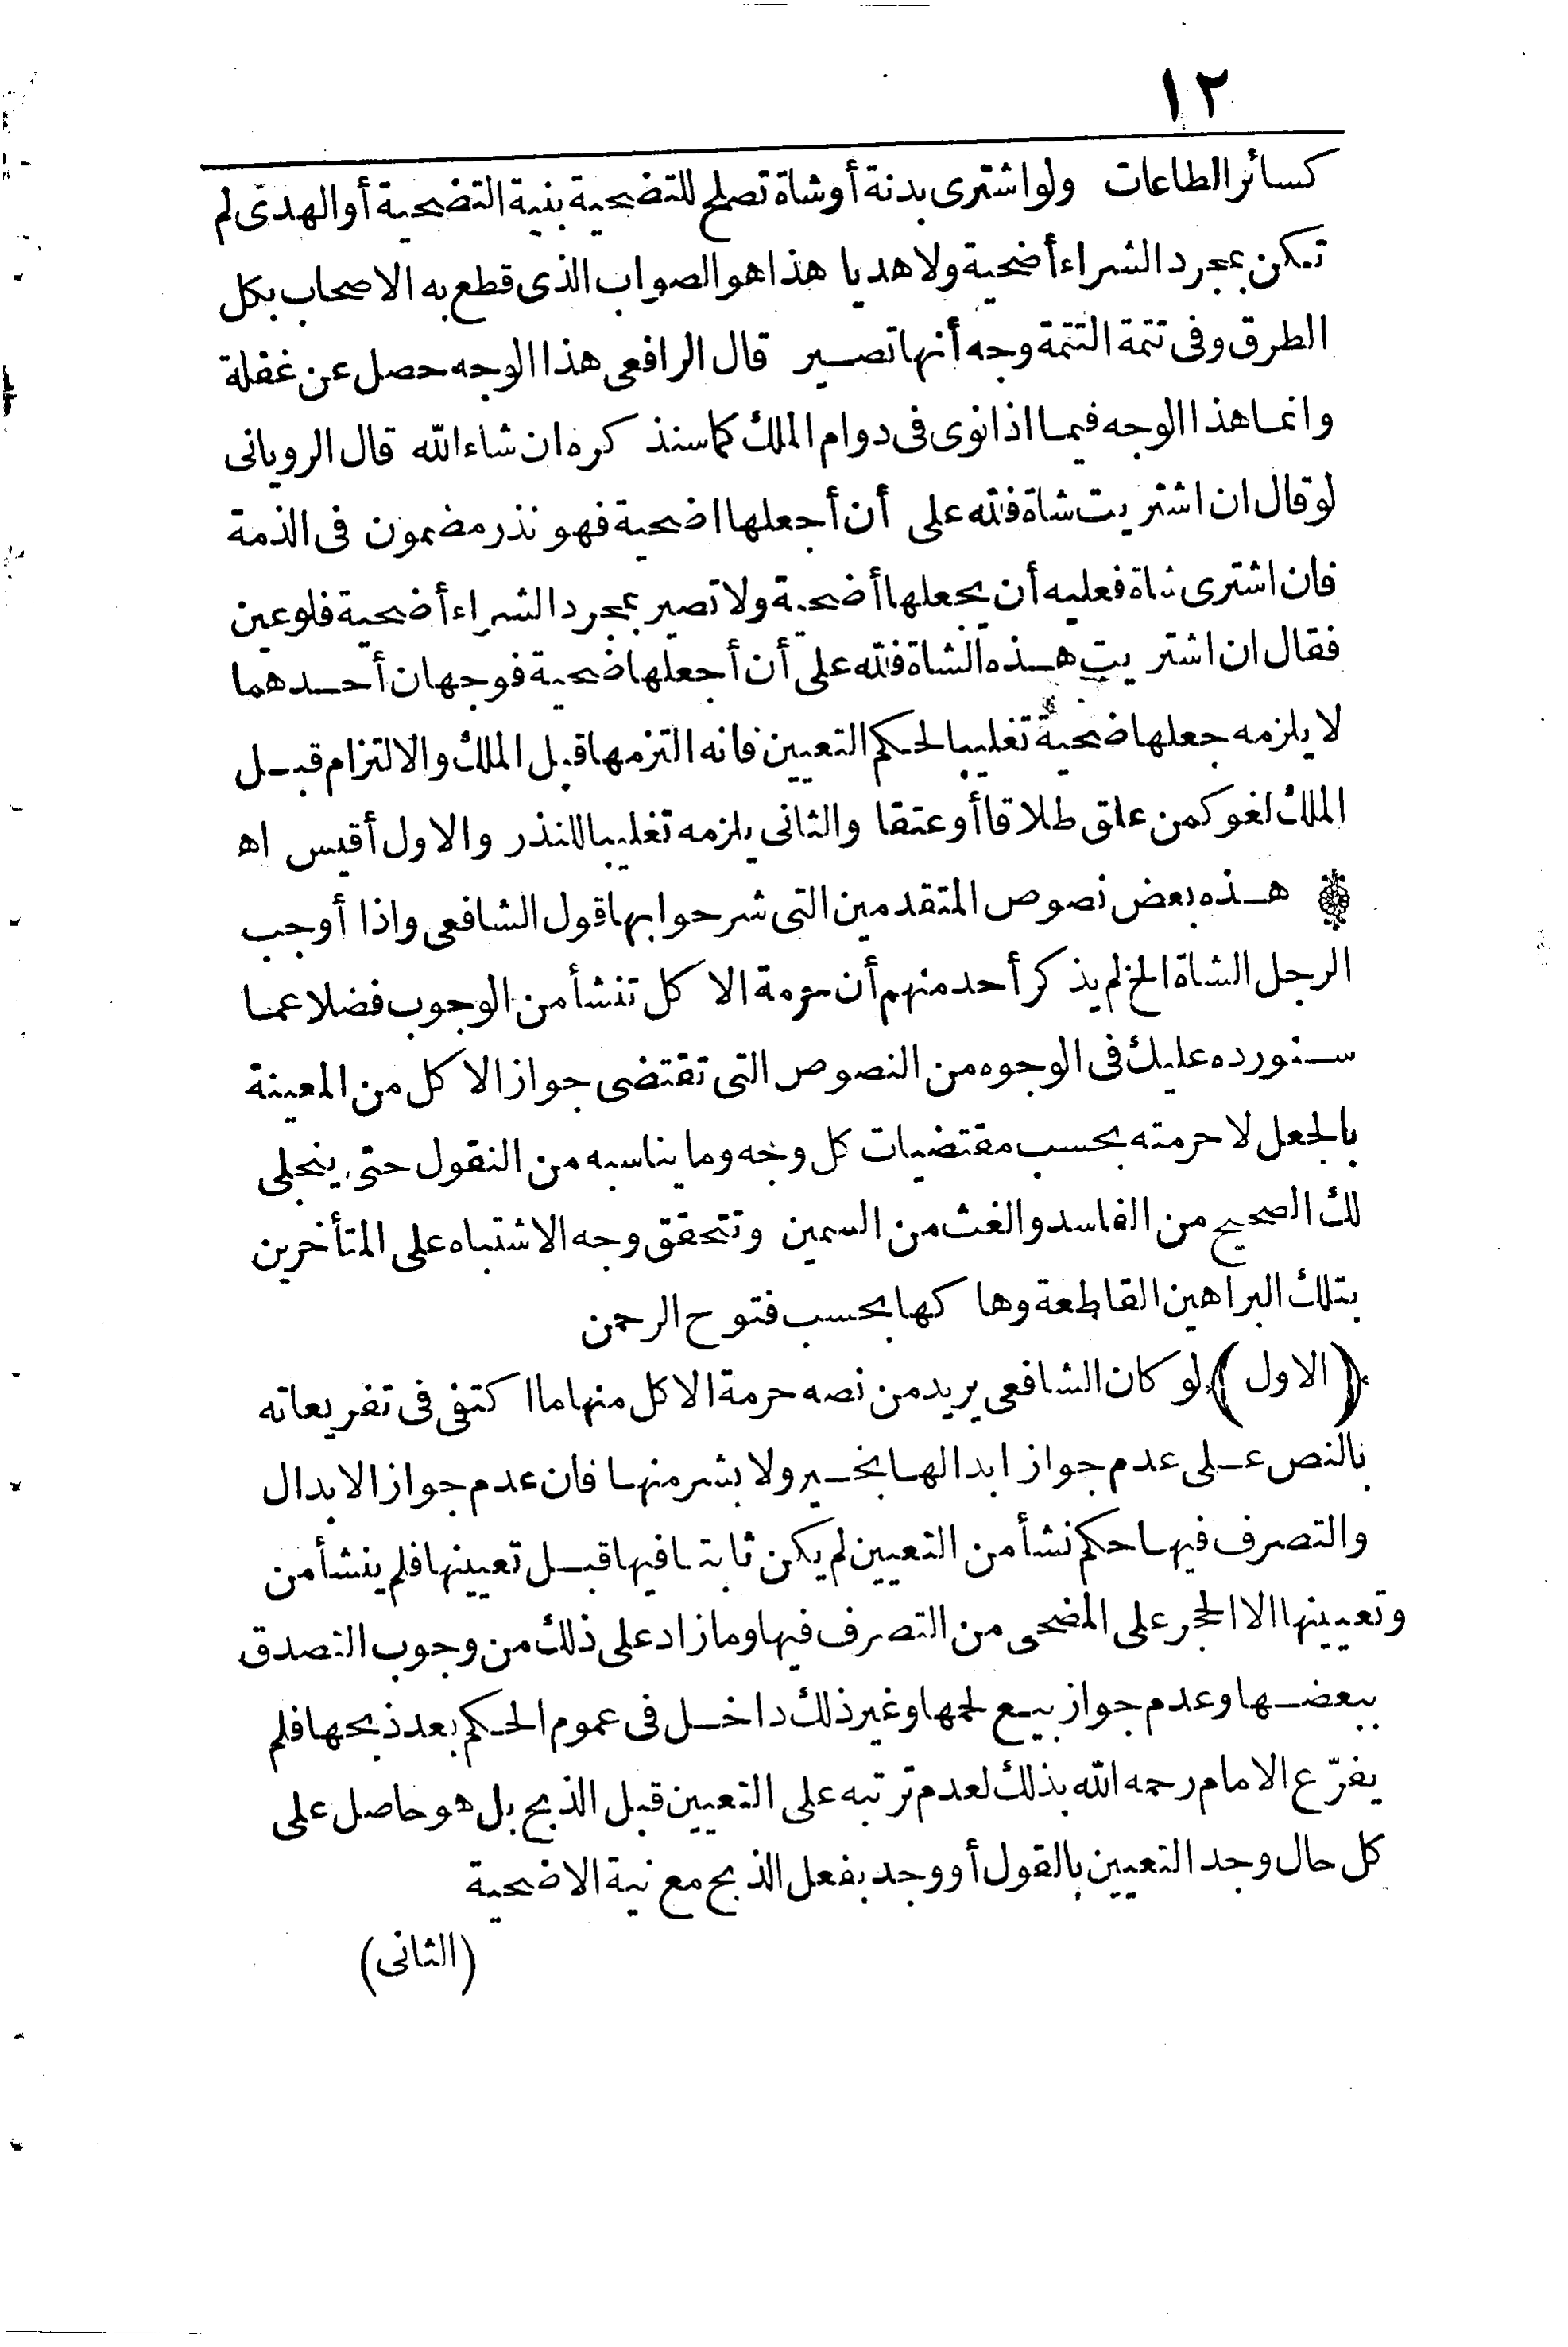 ١٢
كسائر الطاعات ولو اشترى بدنة أو شاة تصلح للتضحية بنية التضحية أو الهدى لم
تكن بمجرد الشراء أضحية ولا هديا هذا هو الصواب الذى قطع به الاصحاب بكل
الطرق وفى تتمة التتمة وجه أنها تصير قال الرافعى هذا الوجه حصل عن غفلة
وانما هذا الوجه فيما اذا نوى فى دوام الملك كما سنذكره ان شاء الله قال الرويانى
لو قال ان اشتريت شاة فلله على أن أجعلها اضحية فهو نذر مضمون فى الذمة
فان اشترى شاة فعليه أن يجعلها أضحية ولا تصير بمجرد الشراء أضحية فلو عين
فقال ان اشتريت هذه الشاة فلله على أن أجعلها ضحية فوجهان أحدهما
لا يلزمه جعلها ضحية تغليبا لحكم التعيين فانه التزمها قبل الملك والالتزام قبل
الملك لغو كمن علق طلاقا أو عتقا والثانى يلزمه تغليبا للنذر والاول أقيس اه
هذه بعض نصوص المتقدمين التى شرحوا بها قول الشافعى واذا أوجب
الرجل الشاة الخ لم يذكر أحد منهم أن حرمة الاكل تنشأ من الوجوب فضلا عما
سنورده عليك فى الوجوه من النصوص التى تقتضى جواز الاكل من المعينة
بالجعل لا حرمته بحسب مقتضيات كل وجه وما يناسبه من النقول حتى ينجلى
لك الصحيح من الفاسد والغث من السمين وتتحقق وجه الاشتباه على المتأخرين
بتلك البراهين القاطعة وها كها بحسب فتوح الرحمن
(الاول) لو كان الشافعى يريد من نصه حرمة الاكل منها ما اكتفى فى تفريعاته
بالنص على عدم جواز ابدالها بخير ولا بشر منها فان عدم جواز الابدال
والتصرف فيها حكم نشأ من التعيين لم يكن ثابتا فيها قبل تعيينها فلم ينشأ من
وتعيينها الا الحجر على المضحى من التصرف فيها وما زاد على ذلك من وجوب التصدق
ببعضها وعدم جواز بيع لحمها وغير ذلك داخل فى عموم الحكم بعد ذبحها فلم
يفرّع الامام رحمه الله بذلك لعدم ترتبه على التعيين قبل الذبح بل هو حاصل على
كل حال وجد التعيين بالقول أو وجد بفعل الذبح مع نية الاضحية
(الثانى)